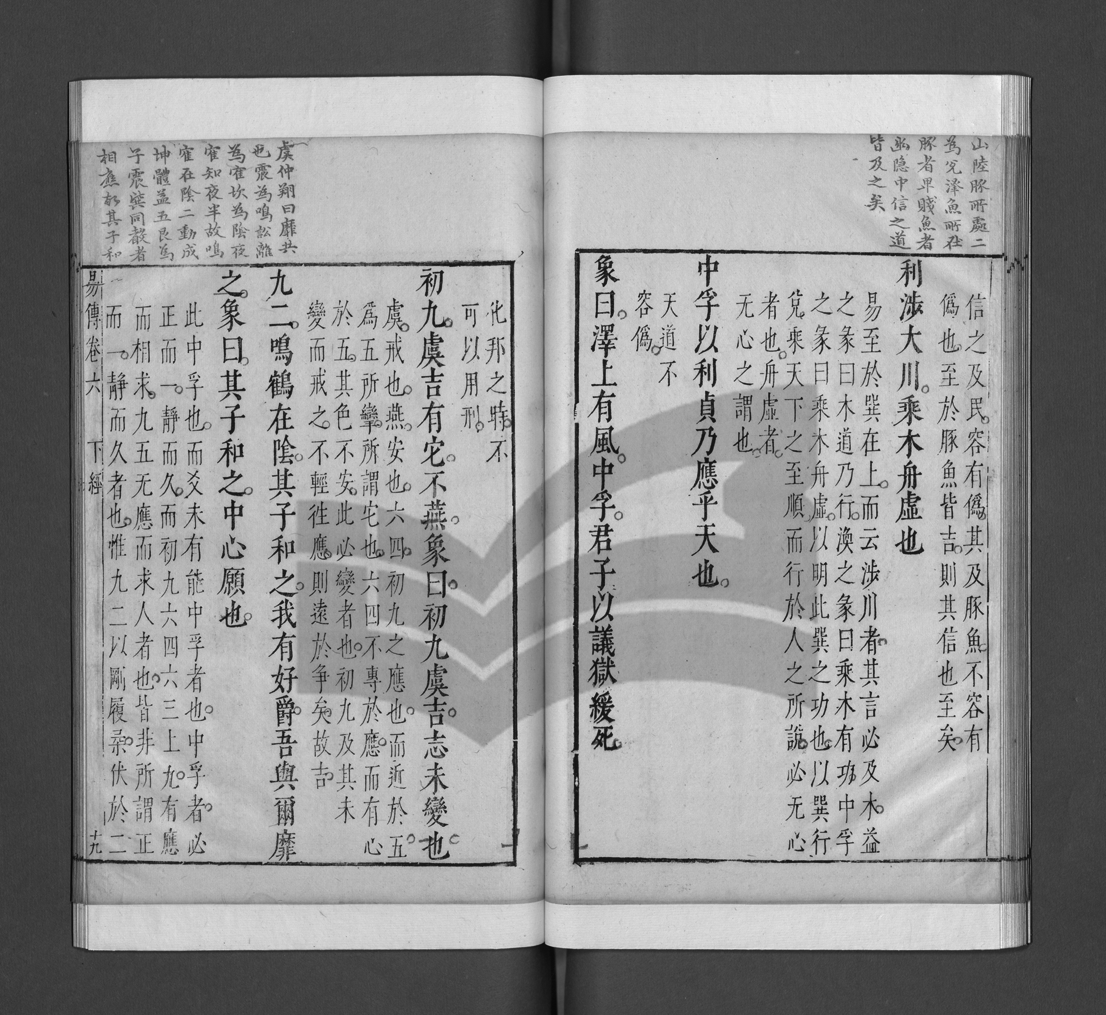 山陸豚所處二
為兊澤魚所在
豚者卑賤魚者
幽隐中信之道
皆及之矣
信之及民容有僞其及豚魚不容有
僞也至於豚魚皆吉則其信也至矣
利涉大川乘木舟虛也
易至於巽在上而云涉川者其言必及木益
之彖曰木道乃行渙之彖曰乘木有功中孚
之彖曰乘木舟虛以明此巽之功也以巽行
兌乘天下之至順而行於人之所說必无心
者也舟虛者
无心之謂也
中孚以利貞乃應乎天也
天道不
容僞
象曰澤上有風中孚君子以議獄緩死
虞仲翔曰靡共
也震為鳴訟離
為隺坎為陰夜
隺知夜半故鳴
隺在陰二動成
坤體益五艮為
子震巽同聲者
相應故其子和
化邦之特不
可以用刑
初九虞吉有它不燕象曰初九虞吉志未變也
虞戒也燕安也六四初九之應也而近於五
爲五所攣所謂它也六四不專於應而有心
於五其色不安此必變者也初九及其未
變而戒之不輕徃應則遠於爭矣故吉
九二鳴鶴在陰其子和之我有好爵吾與爾靡
之象曰其子和之中心願也
此中孚也而爻未有能中孚者也中孚者必
正而一靜而久而初九六四六三上九有應
而相求九五无應而求人者也皆非所謂正
而一靜而久者也惟九二以剛履柔伏於二
易傳卷六 下經 十九